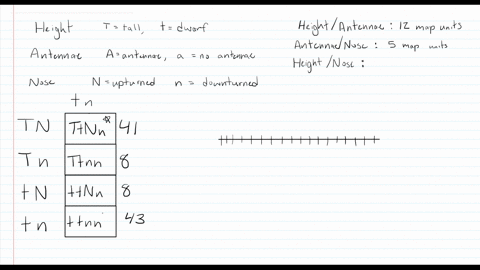 Height T = tall, t = dwarf
Antennae A = antennae, a = no antennae
Nose N = upturned n = downturned
Height/Antennae : 12 map units
Antennae/Nose : 5 map units
Height/Nose :
tn
TN TtNn 41
Tn Ttnn 8
tN ttNn 8
tn ttnn 43